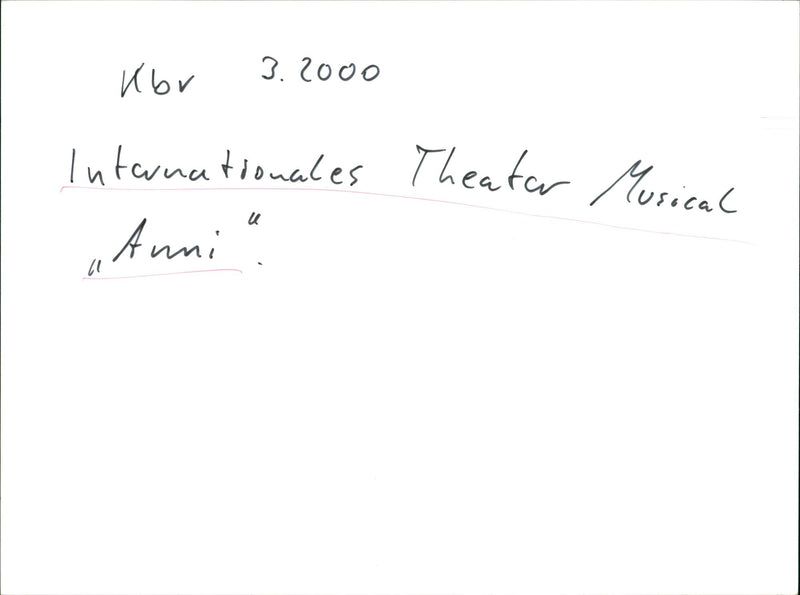 Kbr 3.2000
Internationales Theater Musical
„Anni“.